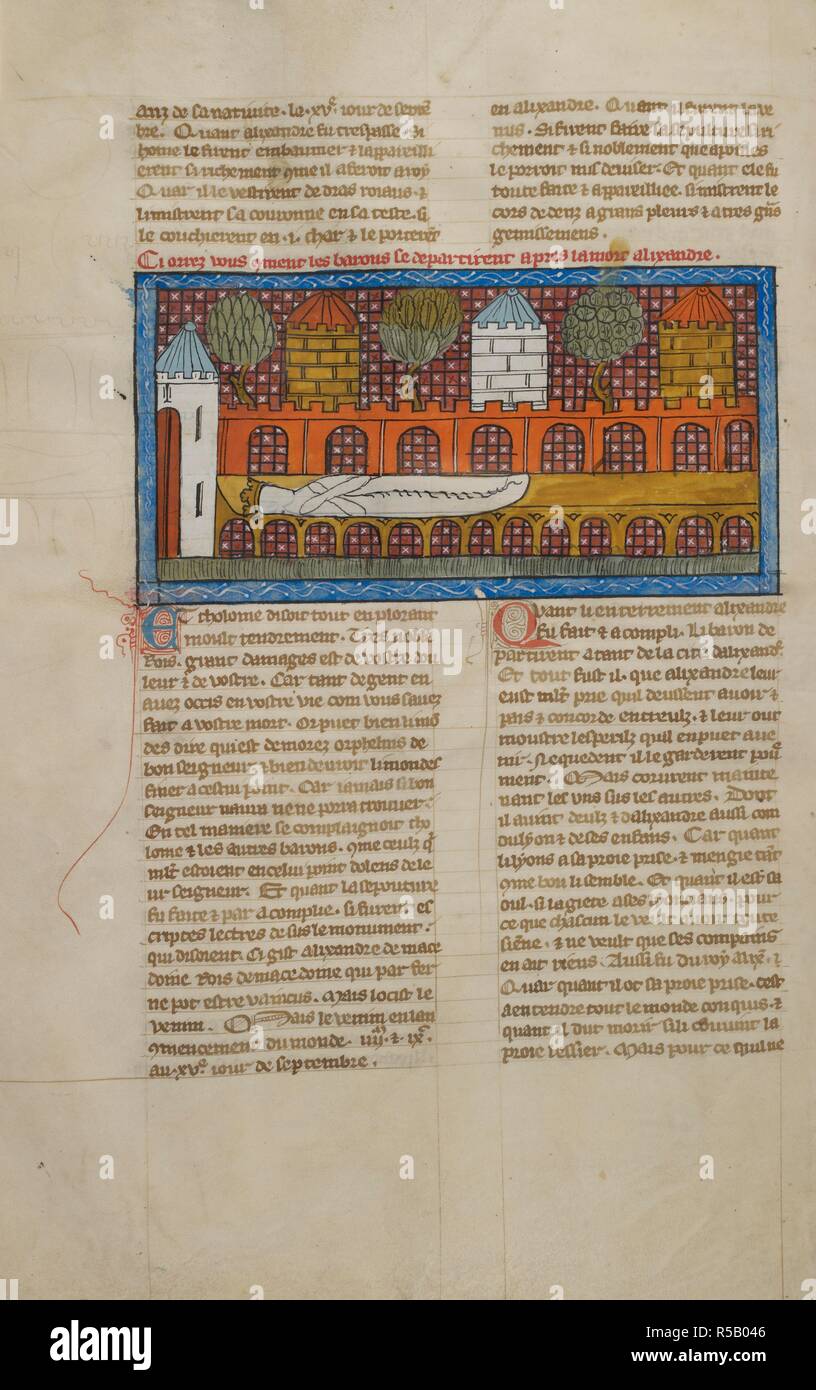 anz de sa natiuite. le. xv. iour de septē
bre. Quant alixandre fu trespasse. si
home le firent embaumer & lappareilli
erent si richement que il aferoit a roy
Quar il le vestirent de dras roiaus. &
li mistrent sa couronne en sa teste. si
le couchierent en .i. char & le porterēt
en alixandre. Quant il furent la ve
nus. si firent faire sa sepulture si ri
chement & si noblement que a poines
le porroit nus deuiser. Et quant ele fu
toute faite & appareilliee. si mistrent le
cors dedenz a grans pleurs & a tres grās
gemissemens.
Ci orrez vous cōment les barons se departirent apres la mort alixandre.
Et tholome disoit tout en plorant
moult tendrement. Tres noble
Rois. grant damages est de vostre dou
leur & de vostre. Car tant de gent en
auez occis en vostre vie com vous sauez
fait a vostre mort. Or puet bien li mō
des dire qu'est demorez orphelins de
bon seigneur & bien deuroit li mondes
finer a cestui point. Car iamais si bon
seigneur naura ne ne porra trouuer.
En tel maniere se complaignoit tho
lome & les autres barons. cōme ceulz q̄
mlt estoient en celui point dolens de le
ur seigneur. Et quant la sepouture
fu faite & par acomplie. si furent es
criptes lectres desus le monument.
qui disoient. Ci gist alixandre de mace
doine Rois de macedoine qui par fer
ne pot estre vaincus. Mais locist le
venim. Mais le venim en lan
cōmencement du monde. iiij. & ix.
au. xv. iour de septembre.
Quant li enterrement alixandre
fu fait & acompli. Li baron de
partirent atant de la cite dalixandr.
Et tout fust il. que alixandre leur
eust mlt prie quil deussent auoir &
pais & concorde entreulz. & leur out
moustre les perilz quil en puet aue
nir. Nequedent il le garderent pour
ment. Mais coururent mainte
nant les vns sus les autres. Dont
il auint deulz & dalixandre aussi com
du lyon & de ses enfans. Car quant
li lyons a sa proie prise. & mengie tant
cōme bon li semble. Et quant il est sa
oul. si la giete a ses lyonciaus. pour
ce que chascun le veult toute
sienne. & ne veult que ses compaing
en ait riens. Aussi fu du roy alix. &
Quar quant il ot sa proie prise. cest
a entendre tout le monde conquis. &
quant il dut morir si li conuint la
proie lessier. Mais pour ce quil ne
alamy
Image ID: R5B046
www.alamy.com